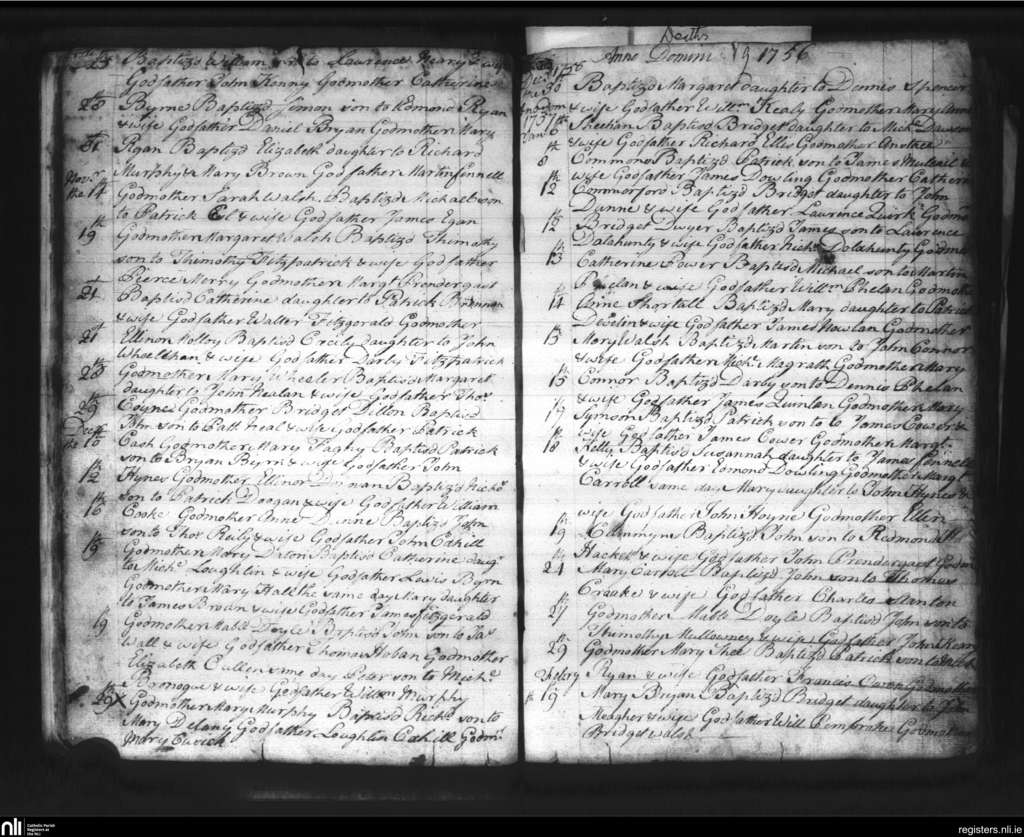 Baptizd William son to Laurence Neary & wife
Godfather John Kenny Godmother Catherine
28 Byrne Baptizd Simon son to Edmond Ryan
& wife Godfather Daniel Bryan Godmother Mary
31 Ryan Baptizd Elizabeth daughter to Richard
Novr Murphy & Mary Brown Godfather Martin Fennell
the 14 Godmother Sarah Walsh Baptizd Michael son
to Patrick & wife Godfather James Egan
19th Godmother Margaret Walsh Baptizd Themothy
son to Themothy Fitzpatrick & wife Godfather
Pierce Merry Godmother Margt Prendergast
21 Baptisd Catherine daughter to Patrick Brennan
& wife Godfather Walter Fitzgerald Godmother
21 Ellinor Baptisd Cecily Daughter to John
Wheelehan & wife Godfather Darby Fitzpatrick
28th Godmother Mary Wheeler Baptisd Margaret
daughter to John & wife Godfather Thos
29th Coyne Godmother Bridget Dillon Baptisd
Decr John son to Patt Neal & wife Godfather Patrick
the 10 Cash Godmother Mary Baptisd Patrick
son to Bryan Byrn & wife Godfather John
12th Hynes Godmother Ellinor Baptizd Richd
son to Patrick Doogan & wife Godfather William
16th Cooke Godmother Anne Dunne Baptisd John
son to Thos & wife Godfather John Cahill
19th Godmother Mary Baptisd Catherine daugr
to Michl Loughlin & wife Godfather Lewis Byrn
Godmother Mary Hall the same day Mary daughter
to James & wife Godfather James Fitzgerald
19 Godmother Mable Doyle Baptisd John son to Jas
Wall & wife Godfather Thomas Hoban Godmother
Elizabeth Cullen same day Peter son to Michl
& wife Godfather Willm Murphy
29th X Godmother Mary Murphy Baptisd Richd son to
Mary Delany Godfather Loughlin Cahill Godmr
Mary
Deaths
Anno Domini 1756
30 Baptizd Margaret daughter to Dennis Spencer
& wife Godfather Willm Healy Godmother Mary
1757 Sheehan Baptisd Bridget daughter to Michl Dawson
Jan 6th & wife Godfather Richard Ellis Godmother
8th Commons Baptizd Patrick son to James &
wife Godfather James Dowling Godmother Cathern
12 Commorford Baptizd Bridget daughter to John
Dunne & wife Godfather Laurence Quirk Godmr
12th Bridget Dwyer Baptizd James son to Laurence
Dalahunty & wife Godfather Dalahunty Godmr
13th Catherine Power Baptisd Michael son to Martin
Phelan & wife Godfather Willm Phelan Godmother
14th Anne Shortall Baptizd Mary daughter to Patrick
& wife Godfather James Nowlan Godmother
15th Mary Walsh Baptizd Martin son to John Connor
& wife Godfather Michl Magrath Godmother Mary
15th Connor Baptizd Darby son to Dennis Phelan
& wife Godfather James Quinlan Godmother Mary
Baptizd Patrick son to James &
wife Godfather James Godmother Margt
18th Kelly Baptisd Susannah daughter to James Fennell
& wife Godfather Edmond Dowling Godmother Margt
Carroll same day Mary daughter to John Hynes &
wife Godfather John Hoyne Godmother Ellen
19th Cummyns Baptizd John son to Redmond
Hacket & wife Godfather John Prendergast Godmr
24th Mary Carroll Baptizd John son to Thomas
Croake & wife Godfather Charles Stanton
27th Godmother Mable Doyle Baptisd John son to
Themothy Mullowney & wife Godfather John
29th Godmother Mary Shee Baptizd Patrick son to
Febry Ryan & wife Godfather Francis Godmother
19th Mary Bryan Baptizd Bridget daughter to John
Meagher & wife Godfather Will Pembroke Godmother
Bridget Walsh
nli
Catholic Parish
Registers at
the NLI
registers.nli.ie